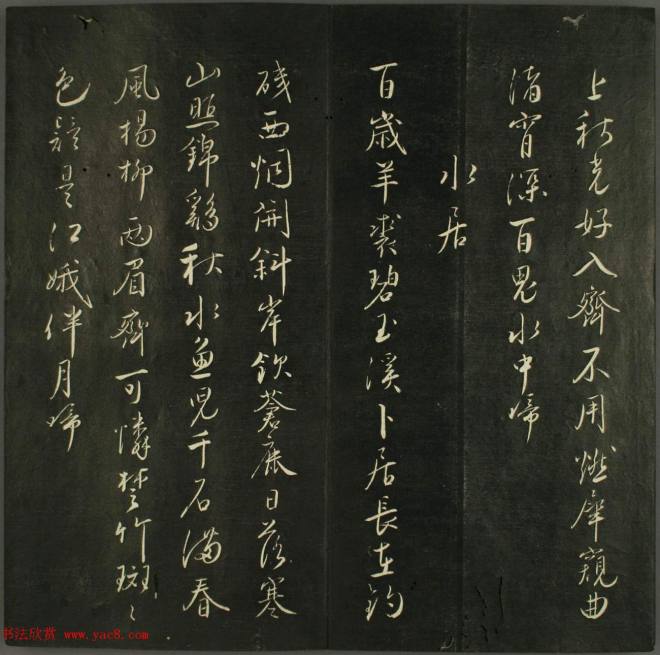 上秋光好入齋不用燃犀窺曲
渚宵深百鬼水中啼
水居
百歲羊裘碧玉溪卜居長在釣
磯西烟開斜岸飲蒼鹿日落寒
山照錦鷄秋水魚兒千石滿春
風楊柳兩眉齊可憐楚竹斑〻
色疑是江娥伴月啼
书法欣赏 www.yac8.com